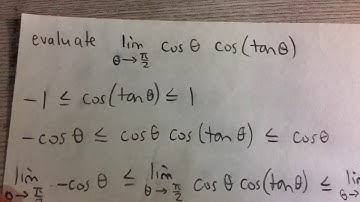 evaluate lim θ→π/2 cosθ cos(tanθ)
-1 ≤ cos(tanθ) ≤ 1
-cosθ ≤ cosθ cos(tanθ) ≤ cosθ
lim θ→π/2 -cosθ ≤ lim θ→π/2 cosθ cos(tanθ) ≤ lim θ→